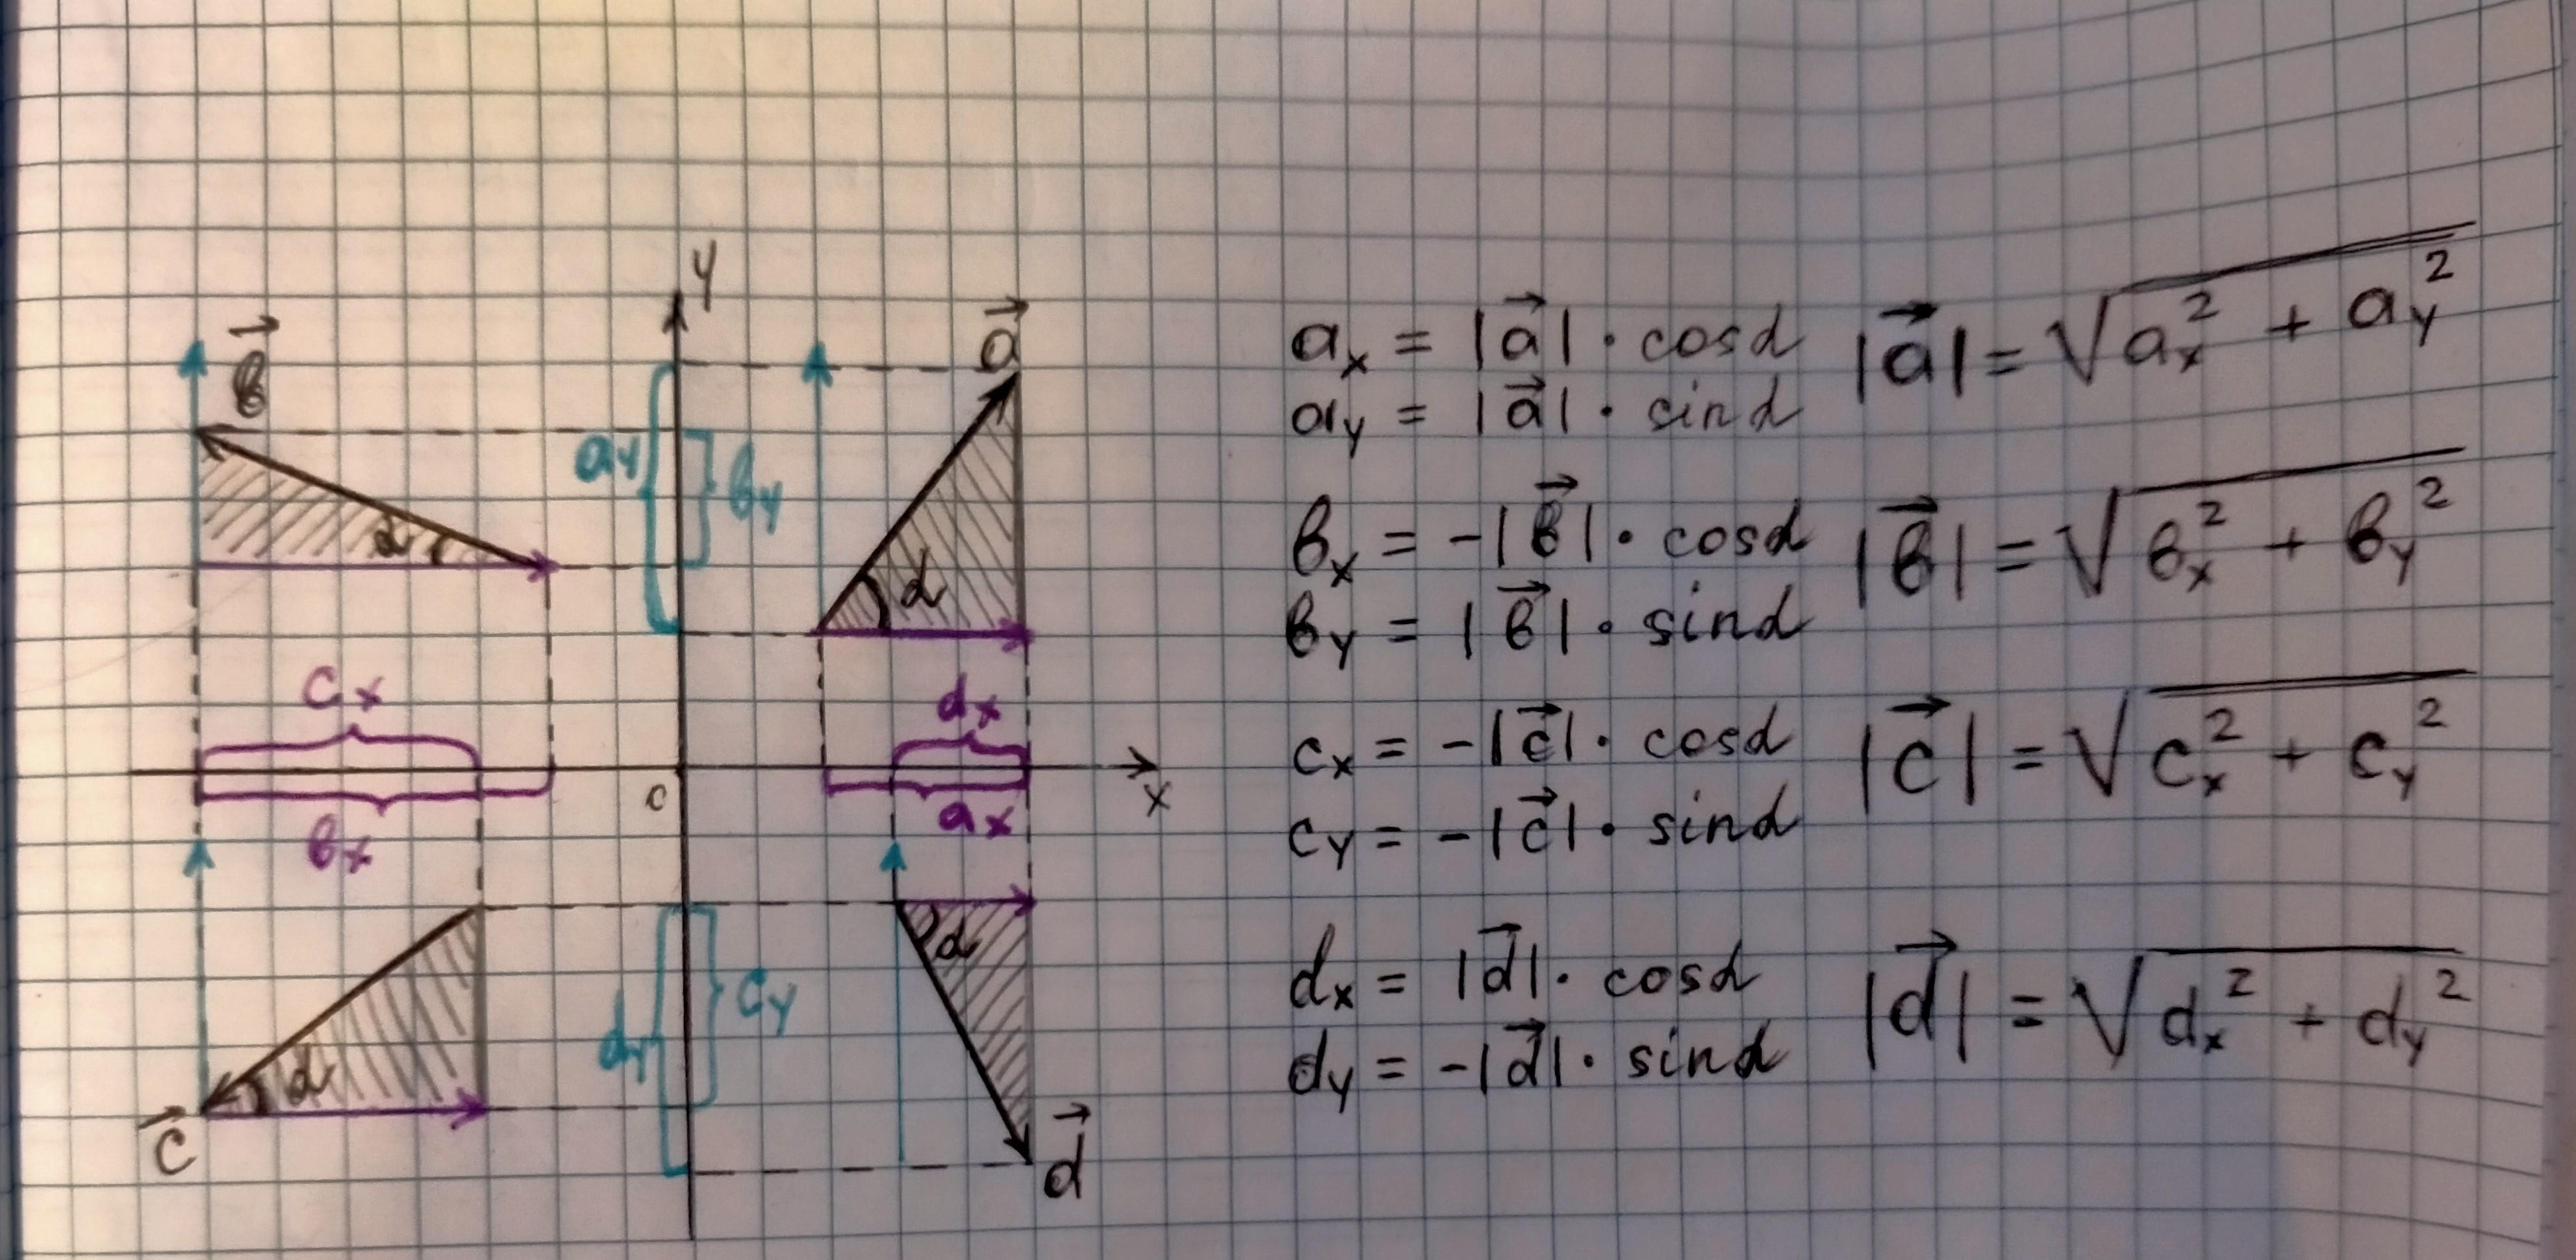 y
b⃗
a⃗
ay
by
α
α
cx
dx
0
x
bx
ax
α
α
dy
cy
c⃗
d⃗
ax = |a⃗| · cosα |a⃗| = √ax² + ay²
ay = |a⃗| · sinα
bx = -|b⃗| · cosα |b⃗| = √bx² + by²
by = |b⃗| · sinα
cx = -|c⃗| · cosα |c⃗| = √cx² + cy²
cy = -|c⃗| · sinα
dx = |d⃗| · cosα |d⃗| = √dx² + dy²
dy = -|d⃗| · sinα